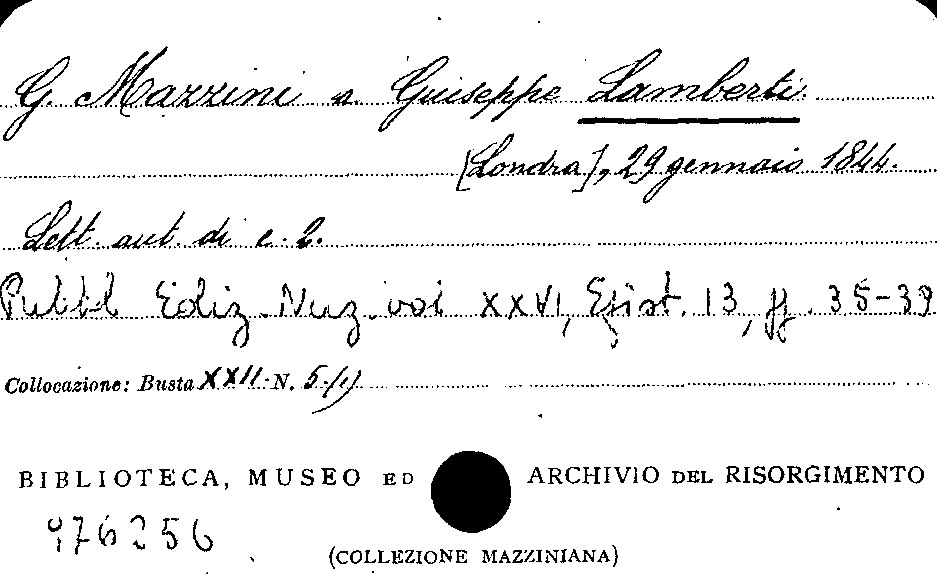 G. Mazzini a Giuseppe Lamberti.
[Londra], 29 gennaio 1844.
Lett. aut. di c. 2.
Pubbl Ediz. Naz. vol XXVI, Epist. 13, pp. 35-39
Collocazione: Busta XXII N. 5/
BIBLIOTECA, MUSEO ED ARCHIVIO DEL RISORGIMENTO
976256
(COLLEZIONE MAZZINIANA)